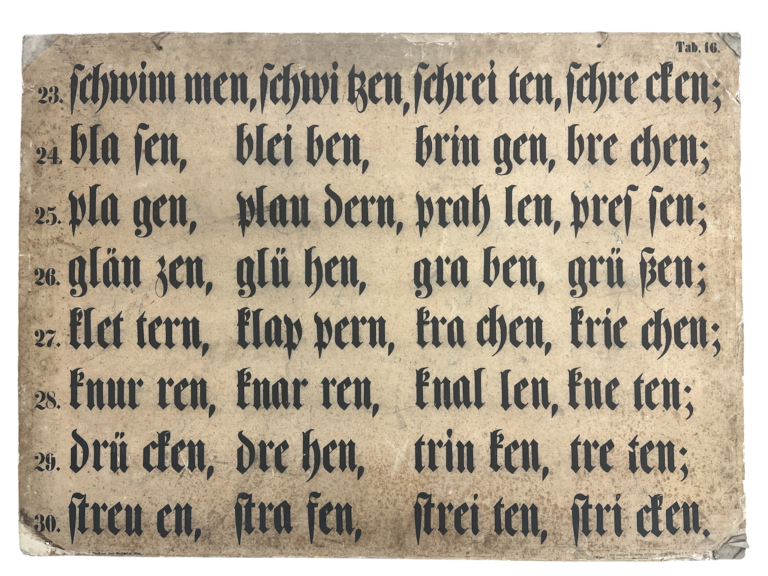 Tab. 16.
23. ſchwim men, ſchwi tzen, ſchrei ten, ſchre cken;
24. bla ſen, blei ben, brin gen, bre chen;
25. pla gen, plau dern, prah len, preſ ſen;
26. glän zen, glü hen, gra ben, grü ßen;
27. klet tern, klap pern, kra chen, krie chen;
28. knur ren, knar ren, knal len, kne ten;
29. drü cken, dre hen, trin ken, tre ten;
30. ſtreu en, ſtra fen, ſtrei ten, ſtri cken.